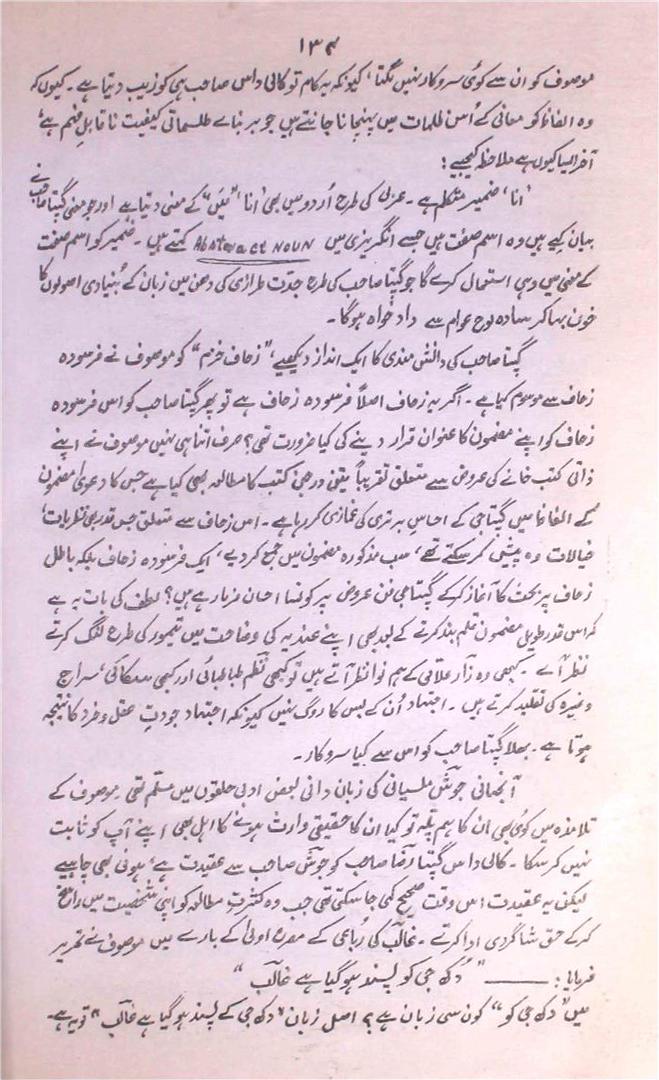 ۱۳۴
موصوف کو ان سے کوئی سروکار نہیں لگتا، کیونکہ یہ کام تو کالی داس صاحب ہی کو زیب دیتا ہے۔ کیوں کہ
وہ الفاظ کو معانی کے اُس ظلمات میں پہنچانا جانتے ہیں جو بر بنائے طلسماتی کیفیت ناقابلِ فہم ہے،
آخر ایسا کیوں ہے ملاحظہ کیجیے:
'انا' ضمیر متکلم ہے۔ عربی کی طرح اُردو میں بھی 'انا' "میں" کے معنی دیتا ہے اور جو معنی گپتا صاحب نے
بیان کیے ہیں وہ اسم صفت ہیں جسے انگریزی میں Abstract NOUN کہتے ہیں۔ ضمیر کو اسم صفت
کے معنی میں وہی استعمال کرے گا جو گپتا صاحب کی طرح جدّت طرازی کی دھن میں زبان کے بُنیادی اصولوں کا
خون بہا کر سادہ لوح عوام سے داد خواہ ہوگا۔
گپتا صاحب کی دانش مندی کا ایک انداز دیکھیے، "زحاف خرم" کو موصوف نے فرسودہ
زحاف سے موسوم کیا ہے۔ اگر یہ زحاف اصلاً فرسودہ زحاف ہے تو پھر گپتا صاحب کو اس فرسودہ
زحاف کو اپنے مضمون کا عنوان قرار دینے کی کیا ضرورت تھی؟ صرف اتنا ہی نہیں موصوف نے اپنے
ذاتی کتب خانے کی عروض سے متعلق تقریباً تین درجن کتب کا مطالعہ بھی کیا ہے جس کا دعویٰ مضمون
کے الفاظ میں گپتا جی کے احساسِ برتری کی غمازی کر رہا ہے۔ اس زحاف سے متعلق جس قدر بھی نظریات،
خیالات وہ پیش کر سکتے تھے، سب مذکورہ مضمون میں جمع کر دیے، ایک فرسودہ زحاف بلکہ باطل
زحاف پر بحث کا آغاز کر کے گپتا جی فن عروض پر کونسا احسان فرما رہے ہیں؟ لطف کی بات یہ ہے
کہ اس قدر طویل مضمون قلم بند کرنے کے بعد بھی اپنے عندیہ کی وضاحت میں تیمور کی طرح لنگ کرتے
نظر آئے۔ کبھی وہ زار علامی کے ہم نوا نظر آتے ہیں تو کبھی نظم طباطبائی اور کبھی سکاکی، سراج
وغیرہ کی تقلید کرتے ہیں۔ اجتہاد اُن کے بس کا روگ نہیں کیونکہ اجتہاد جودتِ عقل و خرد کا نتیجہ
ہوتا ہے۔ بھلا گپتا صاحب کو اس سے کیا سروکار۔
آنجہانی جوش ملسیانی کی زبان دانی بعض ادبی حلقوں میں مسلّم تھی۔ موصوف کے
تلامذہ میں کوئی بھی ان کا ہم پلّہ تو کیا ان کا حقیقی وارث ہونے کا اہل بھی اپنے آپ کو ثابت
نہیں کر سکا۔ کالی داس گپتا رضا صاحب کو جوش صاحب سے عقیدت ہے، ہونی بھی چاہیے
لیکن یہ عقیدت اس وقت صحیح کہی جا سکتی تھی جب وہ کثرتِ مطالعہ کو اپنی شخصیت میں راسخ
کر کے حق شاگردی ادا کرتے۔ غالب کی رُباعی کے مصرعہ اولیٰ کے بارے میں موصوف نے تحریر
فرمایا: ——— "دُکھ جی کو پسند ہو گیا ہے غالب"
میں "دکھ جی کو" کون سی زبان ہے؟ اصل زبان "دکھ جی کے پسند ہو گیا ہے غالب" تو یہ ہے۔